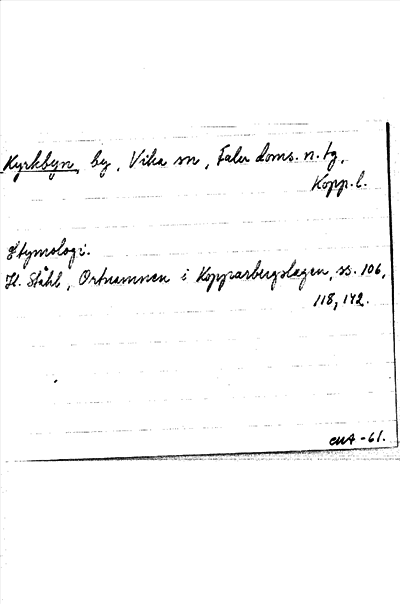 Kyrkbyn, by, Vika sn, Falu doms. n. tg,
Kopp. l.
Etymologi.
H. Ståhl, Ortnamnen i Kopparbergslagen, ss. 106,
118, 142.
-61.